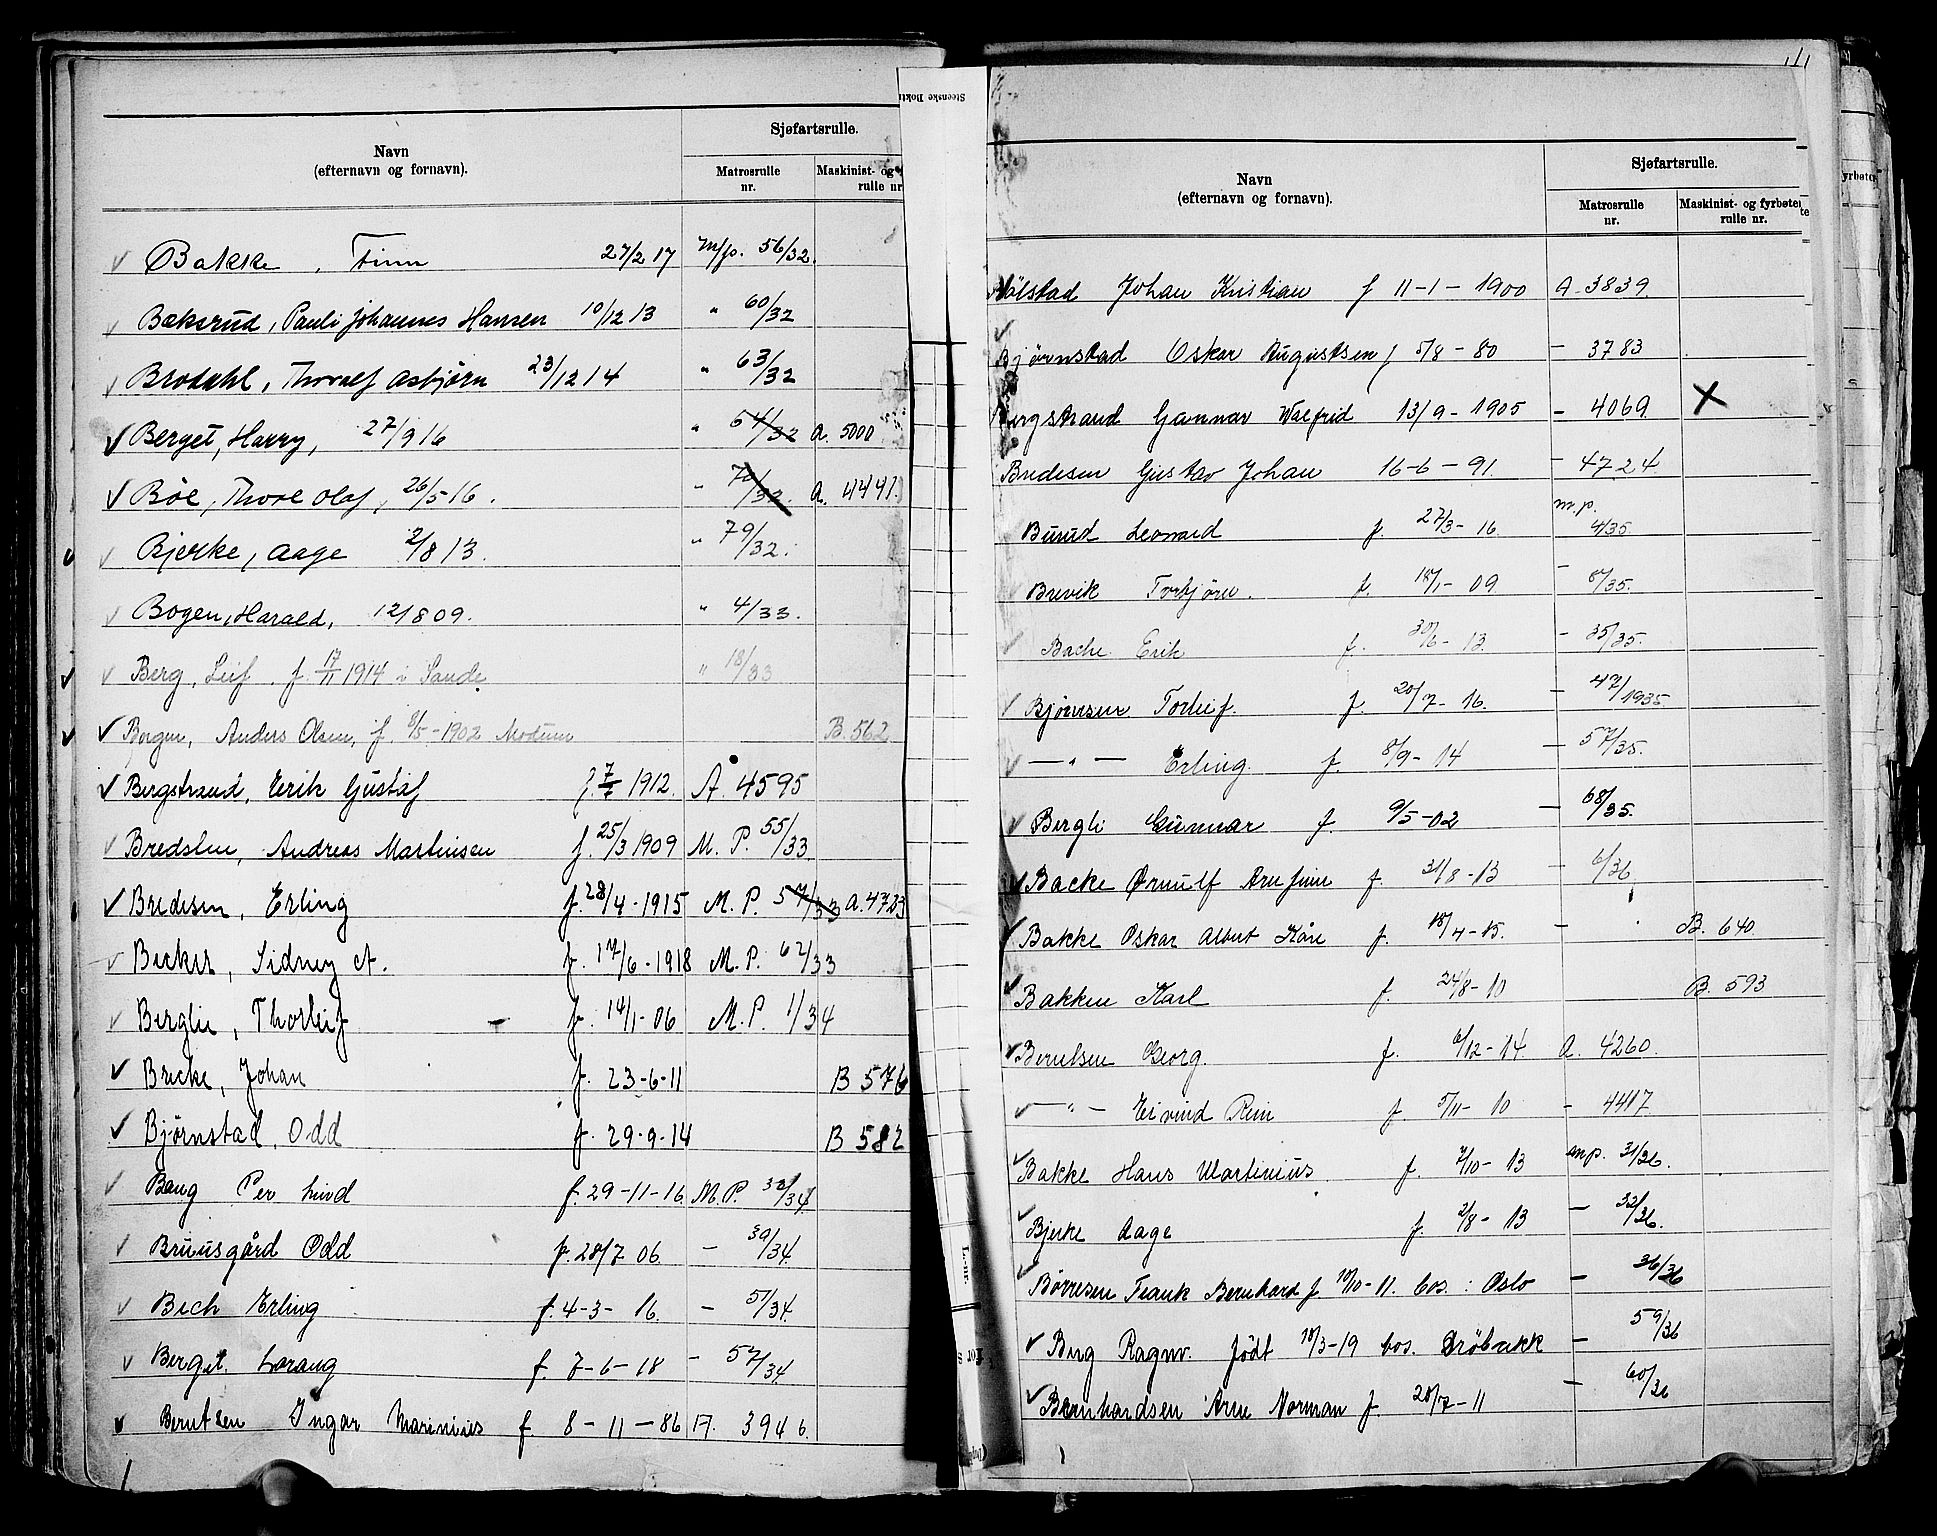 Navn
(efternavn og fornavn).
Sjøfartsrulle.
Matrosrulle
nr.
Maskinist- og
rulle nr.
Bakke, Finn 27/2 17 M/p. 56/32.
Bækerud, Pauli Johannes Hansen 10/12 13 " 60/32
Brodahl, Thoralf Asbjørn 23/12 14 " 63/32
Berget, Harry, 27/9 16 " 64/32 A. 5000
Bøe, Thore Olaf, 26/5 16. " 70/32. A. 4441.
Bjerke, Aage 2/8 13. " 79/32.
Bogen, Harald, 12/8 09. " 4/33.
Berg, Leif. f. 17/11 1914 i Sande " 18/33
Borgen, Anders Olsen, f. 8/5-1902 Modum B. 562
Bergstrand, Erik Gustaf f. 7/7 1912. A. 4595
Bredslen, Andreas Martinsen f. 25/3 1909 M. P. 55/33
Bredesen, Erling f. 28/4-1915 M. P. 57/33 A. 4723
Becker, Sidney A. f. 17/6-1918 M. P. 62/33
Berglie, Thorleif f. 14/1-06 M. P. 1/34
Brecke, Johan f. 23-6-11 B 576
Bjørnstad, Odd f. 29-9-14 B 582
Baug Per Lund f. 29-11-16. M. P. 38/34.
Bruusgård Odd f. 28/7 06. – 39/34.
Bech Erling f. 4-3- 16. – 51/34.
Berget. Lorang f. 7-6-18 – 57/34
Berntsen Ingar Marinius f. 8-11-86 A. 3946.
Steenske Boktr
Navn
(efternavn og fornavn).
Sjøfartsrulle.
Matrosrulle
nr.
Maskinist- og fyrbøter
rulle nr.
Bølstad Johan Kristian f 11-1-1900 A. 3839.
Bjørnstad Oskar Augustsen f 5/8-80 – 3783
Bergstrand Gunnar Walfrid 13/9-1905 – 4069 X
Bredesen Gustav Johan 16-6-91. – 4724
Burud Leonard f. 27/3-16 m.p. 4/35
Brevik Torbjørn. f. 18/1-09 – 8/35.
Bache Erik f. 30/6-13 – 35/35.
Bjørnsen Torleif. f. 20/7-16. – 47/1935
— " — Erling. f. 8/9-14 – 57/35.
Bergli Gunnar f. 9/5-02 – 68/35.
Backe Ørnulf Arnfinn f. 31/8-13 – 6/36
Bakke Oskar Albert Kåre f. 18/4-15. – B. 640
Bakken Karl f. 24/8-10 B. 593
Berntsen Georg. f. 6/12-14 A. 4260.
— " — Eivind Rein f 5/11-10 – 4417
Bakke Hans Martinius f 7/10-13 m.p. 31/36.
Bjerke Aage f. 2/8-13 – 32/36.
Børresen Frank Bernhard f. 10/10-11. bos. i Oslo – 36/36
Berg Ragnv. født 18/3-19 bos. Drøbakk – 59/36
Bernhardsen Arne Norman f. 28/7-11 – 60/36